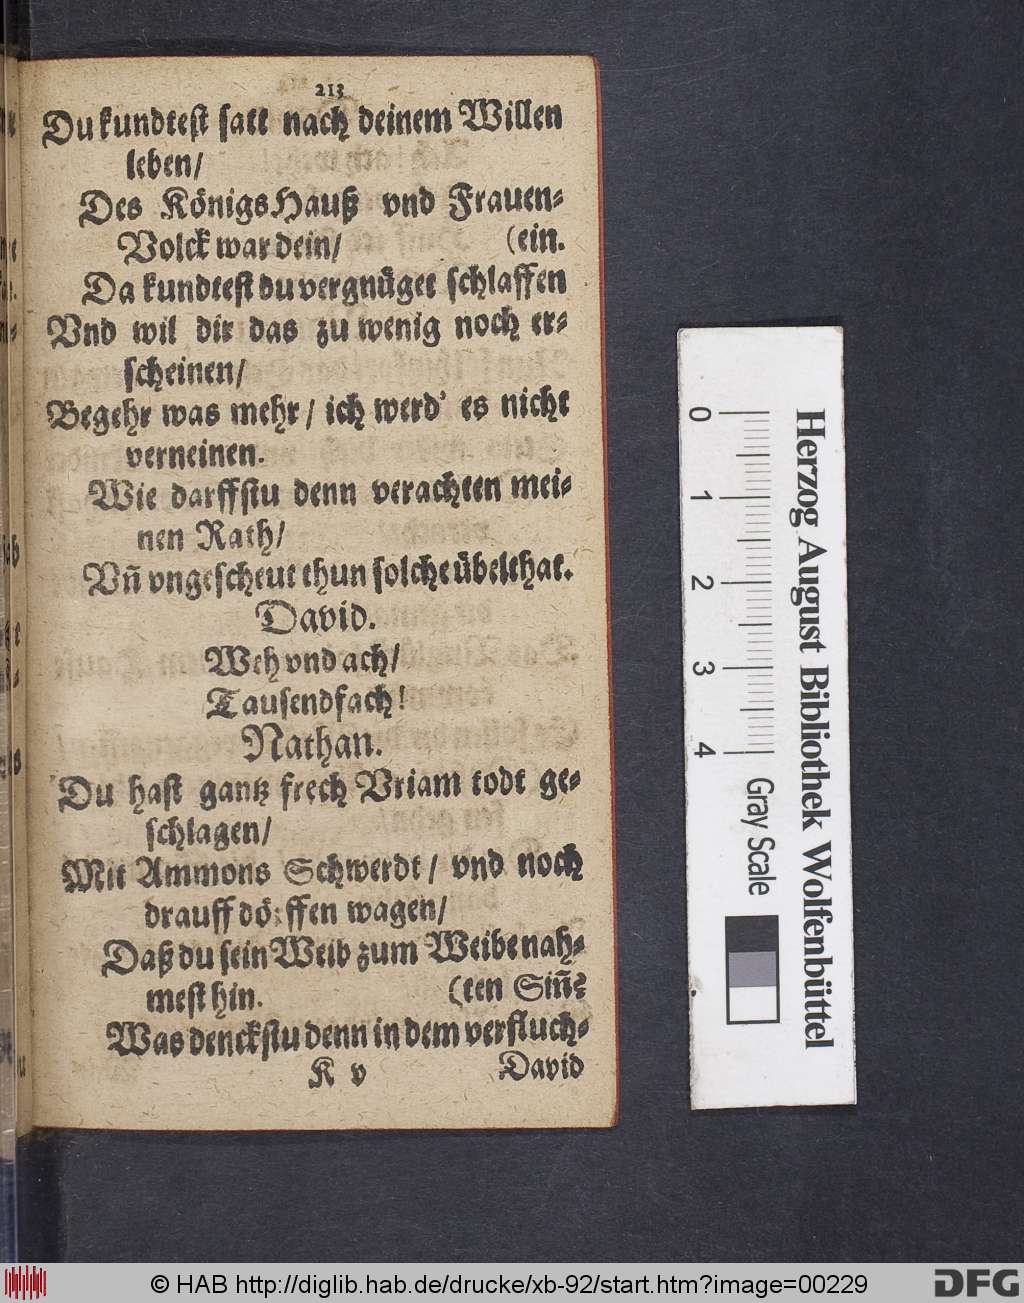 213
Du kundtest satt nach deinem Willen
leben/
Des Königs Hauß vnd Frauen-
Volck war dein/ (ein.
Da kundtest du vergnüget schlaffen
Vnd wil dir das zu wenig noch er-
scheinen/
Begehr was mehr/ ich werd' es nicht
verneinen.
Wie darffstu denn verachten mei-
nen Rath/
Vñ vngescheut thun solche übelthat.
David.
Weh vnd ach/
Tausendfach!
Nathan.
Du hast gantz frech Vriam todt ge-
schlagen/
Mit Ammons Schwerdt/ vnd noch
drauff dörffen wagen/
Daß du sein Weib zum Weibe nah-
mest hin. (ten Siñ?
Was denckstu denn in dem verfluch-
K v David
0 1 2 3 4
Gray Scale
Herzog August Bibliothek Wolfenbüttel
© HAB http://diglib.hab.de/drucke/xb-92/start.htm?image=00229
DFG